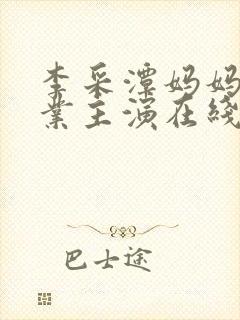 李采潭妈妈
业主演在线
巴士途